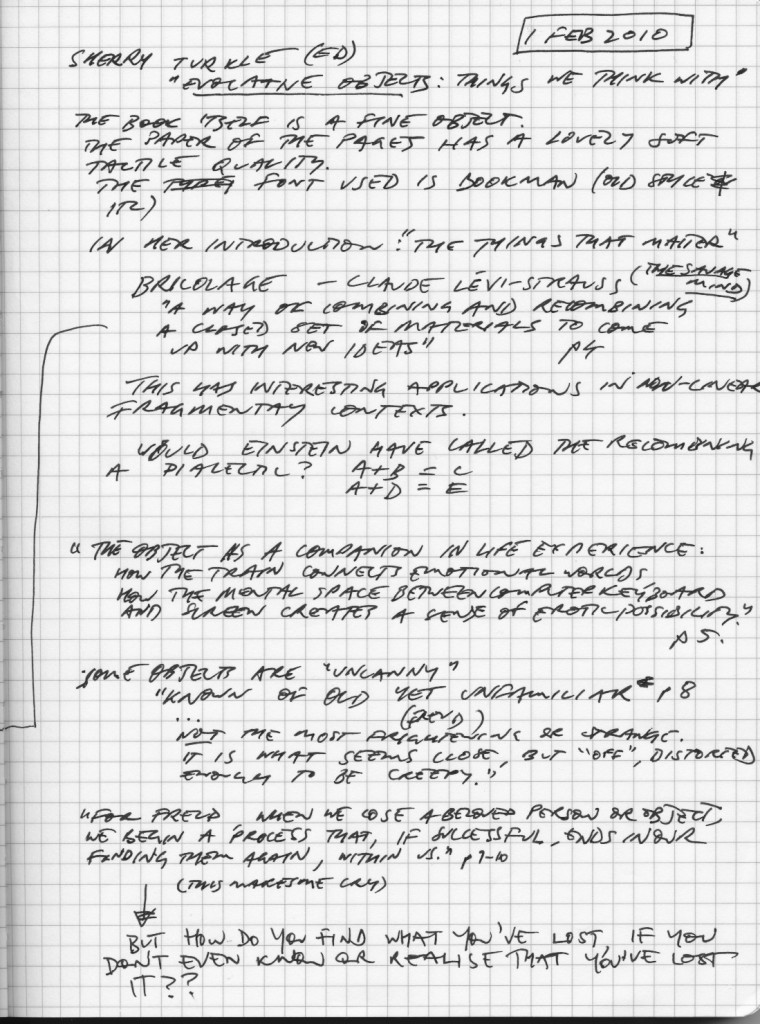 1 FEB 2010
SHERRY TURKLE (ED)
"EVOCATIVE OBJECTS: THINGS WE THINK WITH"
THE BOOK ITSELF IS A FINE OBJECT.
THE PAPER OF THE PAGES HAS A LOVELY SOFT
TACTILE QUALITY.
THE FONT USED IS BOOKMAN (OLD STYLE
ITC)
IN HER INTRODUCTION: "THE THINGS THAT MATTER"
BRICOLAGE - CLAUDE LÉVI-STRAUSS (THE SAVAGE
MIND)
"A WAY OF COMBINING AND RECOMBINING
A CLOSED SET OF MATERIALS TO COME
UP WITH NEW IDEAS" p4
THIS HAS INTERESTING APPLICATIONS IN NON-LINEAR
FRAGMENTAY CONTEXTS.
WOULD EINSTEIN HAVE CALLED THE RECOMBINING
A DIALECTIC? A+B = C
A+D = E
"THE OBJECT AS A COMPANION IN LIFE EXPERIENCE:
HOW THE TRAIN CONNECTS EMOTIONAL WORLDS
HOW THE MENTAL SPACE BETWEEN COMPUTER KEYBOARD
AND SCREEN CREATES A SENSE OF EROTIC POSSIBILITY."
p5.
SOME OBJECTS ARE "UNCANNY"
"KNOWN OF OLD YET UNFAMILIAR" p8
... (FREUD)
NOT THE MOST FRIGHTENING OR STRANGE.
IT IS WHAT SEEMS CLOSE, BUT "OFF", DISTORTED
ENOUGH TO BE CREEPY."
"FOR FREUD WHEN WE LOSE A BELOVED PERSON OR OBJECT,
WE BEGIN A PROCESS THAT, IF SUCCESSFUL, ENDS IN OUR
FINDING THEM AGAIN, WITHIN US." p9-10
(THIS MAKES ME CRY)
BUT HOW DO YOU FIND WHAT YOU'VE LOST, IF YOU
DON'T EVEN KNOW OR REALISE THAT YOU'VE LOST
IT??